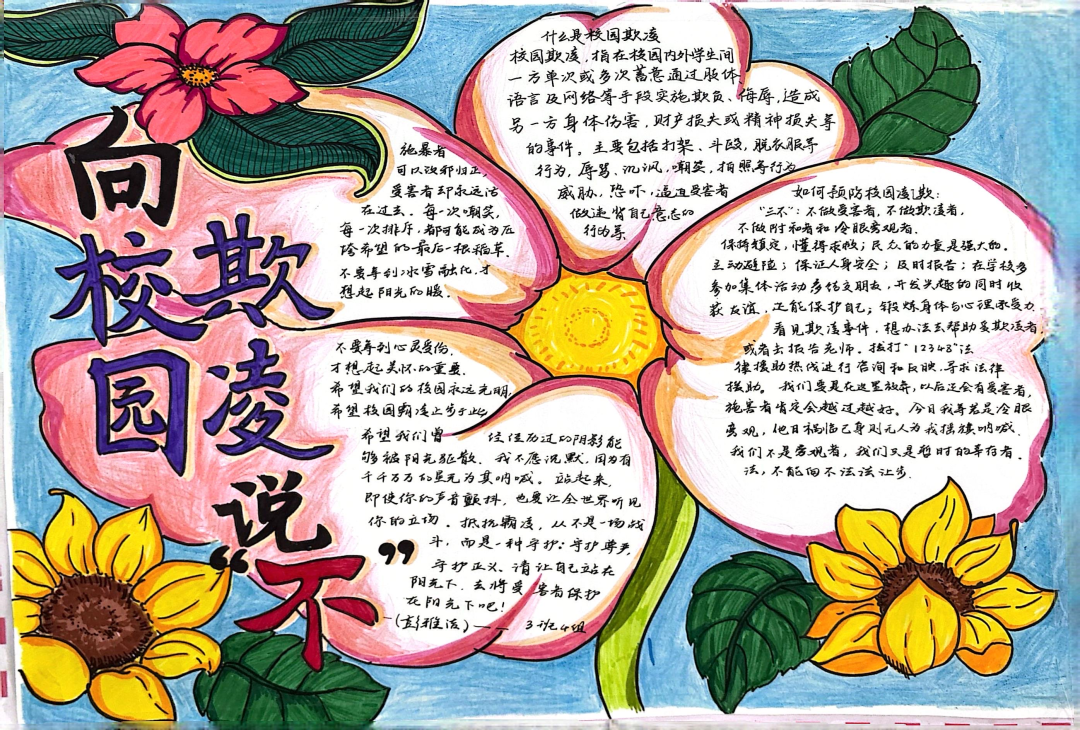 向校园
欺凌说
“不”
什么是校园欺凌
校园欺凌，指在校园内外学生间
一方单次或多次蓄意通过肢体
语言及网络等手段实施欺负、侮辱，造成
另一方身体伤害，财产损失或精神损失等
的事件。主要包括打架、斗殴，脱衣服等
行为，辱骂，讥讽，嘲笑，拍照等行为
威胁，恐吓，逼迫受害者
做违背自己意志的
行为等
施暴者
可以改邪归正，
受害者却永远活
在过去。每一次嘲笑，
每一次排斥，都可能成为压
垮希望的最后一根稻草。
不要等到冰雪融化，才
想起阳光的暖。
不要等到心灵受伤，
才想起关怀的重要。
希望我们的校园永远光明，
希望校园霸凌止步于此
希望我们曾经经历过的阴影能
够被阳光驱散。我不愿沉默，因为有
千千万万的星光为其呐喊。站起来，
即使你的声音颤抖，也要让全世界听见
你的立场。抵抗霸凌，从不是一场战
斗，而是一种守护：守护尊严，
守护正义。请让自己站在
阳光下，去将受害者保护
在阳光下吧！
雅洁）—— 3班4组
如何预防校园凌欺：
“三不”：不做受害者，不做欺凌者，
不做附和者和冷眼旁观者.
保持镇定，懂得求救；民众的力量是强大的。
主动避险；保证人身安全；及时报告；在学校多
参加集体活动多结交朋友，开发兴趣的同时收
获友谊，还能保护自己；锻炼身体与心理承受力
看见欺凌事件，想办法去帮助被欺凌者，
或者去报告老师。拨打“12348”法
律援助热线进行咨询和反映，寻求法律
援助。我们要是在这里放弃，以后还会有受害者，
施害者肯定会越过越好。今日我等若是冷眼
旁观，他日祸临己身则无人为我摇旗呐喊.
我们不是旁观者，我们只是暂时的幸存者.
法，不能向不法法让步.